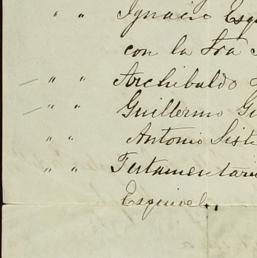 " " Ignacio Esq
con la Sra
" " Archibaldo
" " Guillermo G
" " Antonio Sist
" " Testamentari
Esquivel.